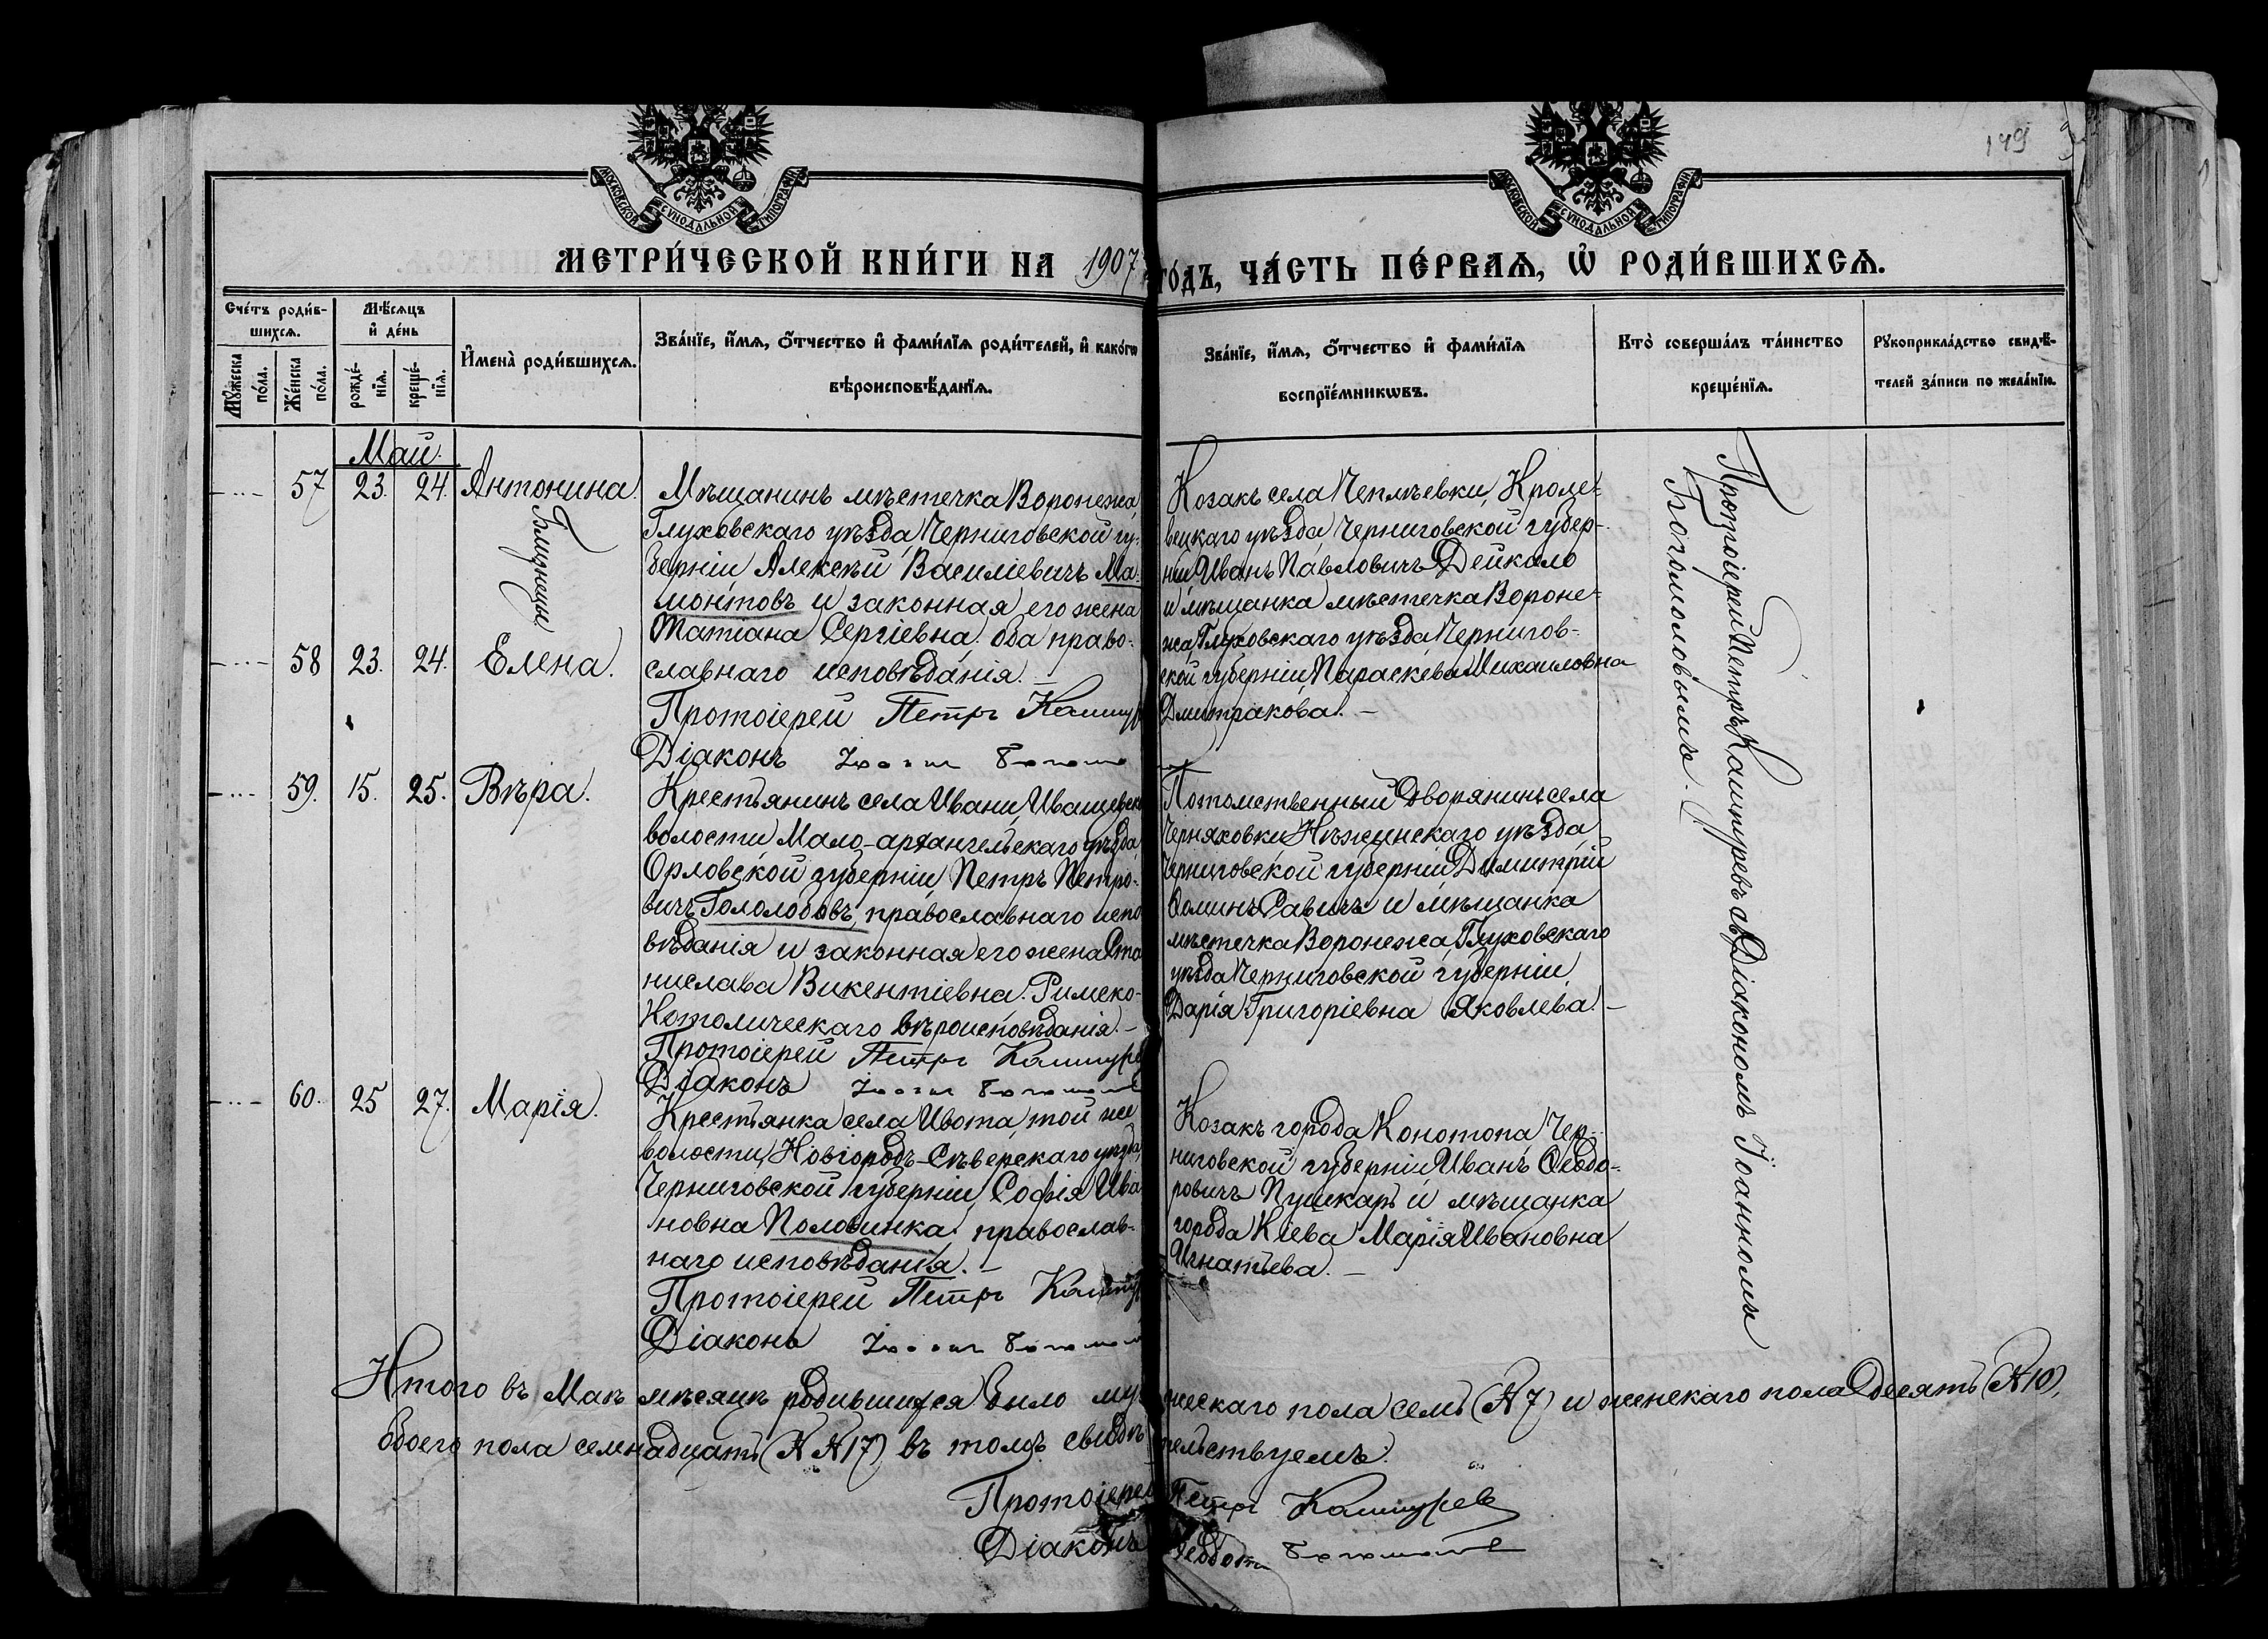 МОСКОВСКОЙ СѴНОДАЛЬНОЙ ТИПОГРАФІИ
МОСКОВСКОЙ СѴНОДАЛЬНОЙ ТИПОГРАФІИ
149
МЕТРИ́ЧЕСКОЙ КНИ́ГИ НА 1907 ГО́ДЪ, ЧА́СТЬ ПЕ́РВАѦ, Ѡ РОДИ́ВШИХСѦ.
Сче́тъ роди́в-
шихсѧ.
Мѣ́сѧцъ
и҆ де́нь
Мꙋ́жеска по́ла.
Же́нска по́ла.
рожде́-
нїѧ.
креще́-
нїѧ.
И҆мена̀ роди́вшихсѧ.
Зва́нїе, и҆́мѧ, ѻ҆́тчество и҆ фами́лїѧ роди́телей, и҆ како́гѡ
вѣроисповѣ́данїѧ.
Зва́нїе, и҆́мѧ, ѻ҆́тчество и҆ фами́лїѧ
воспрїе́мникѡвъ.
Кто̀ соверша́лъ та́инство
креще́нїѧ.
Рꙋкоприкла́дство свидѣ́-
телей за́писи по жела́нїю.
Май.
57 23. 24. Антонина.
Близнецы
58 23. 24. Елена.
Мѣщанинъ мѣстечка Воронежа,
Глуховскаго уѣзда, Черниговской гу-
берніи Алексѣй Василіевичъ Ма-
монтовъ и законная его жена
Татіана Сергіевна, оба право-
славнаго исповѣданія. –
Протоіерей Петръ Кашпур
Діаконъ
Козакъ села Чеплѣевки, Кроле-
вецкаго уѣзда, Черниговской губер-
ніи Иванъ Павловичъ Дейкало
и мѣщанка мѣстечка Вороне-
жа, Глуховскаго уѣзда, Чернигов-
ской губерніи, Параскева Михаиловна
Дмитракова. –
Протоіерей Петръ Кашпуревъ съ Діакономъ Іоанномъ
Богомоловымъ.
59. 15. 25. Вѣра.
Крестьянинъ села Ивани, Иващевск
волости Мало-архангельскаго уѣзда,
Орловской губерніи, Петръ Петро-
вичъ Гололобовъ, православнаго испо
вѣданія и законная его жена Ста
нислава Викентіевна, Римско-
Католическаго вѣроисповѣданія. –
Протоіерей Петръ Кашпуре
Діаконъ
Потомственный Дворянинъ села
Черняховки, Нѣжинскаго уѣзда,
Черниговской губерніи, Димитрій
Ѳоминъ Савичъ и мѣщанка
мѣстечка Воронежа, Глуховскаго
уѣзда Черниговской губерніи,
Дарія Григоріевна Яковлева. –
60. 25 27. Марія.
Крестьянка села Ивота, той же
волости, Новгородъ-Сѣверскаго уѣзда,
Черниговской губерніи, Софія Ива
новна Половинка, православ-
наго исповѣданія. –
Протоіерей Петръ Кашпу
Діаконъ
Козакъ города Конотопа, Чер-
ниговской губерніи, Иванъ Ѳеодо-
ровичъ Пушкарь и мѣщанка
города Кіева Марія Ивановна
Игнатьева. –
Итого въ Маѣ мѣсяцѣ родившихся было мужескаго пола семь (№ 7) и женскаго пола десять (№ 10),
обоего пола семнадцать (№№ 17) въ томъ свидѣтельствуемъ.
Протоіерей Петръ Кашпуревъ
Діаконъ